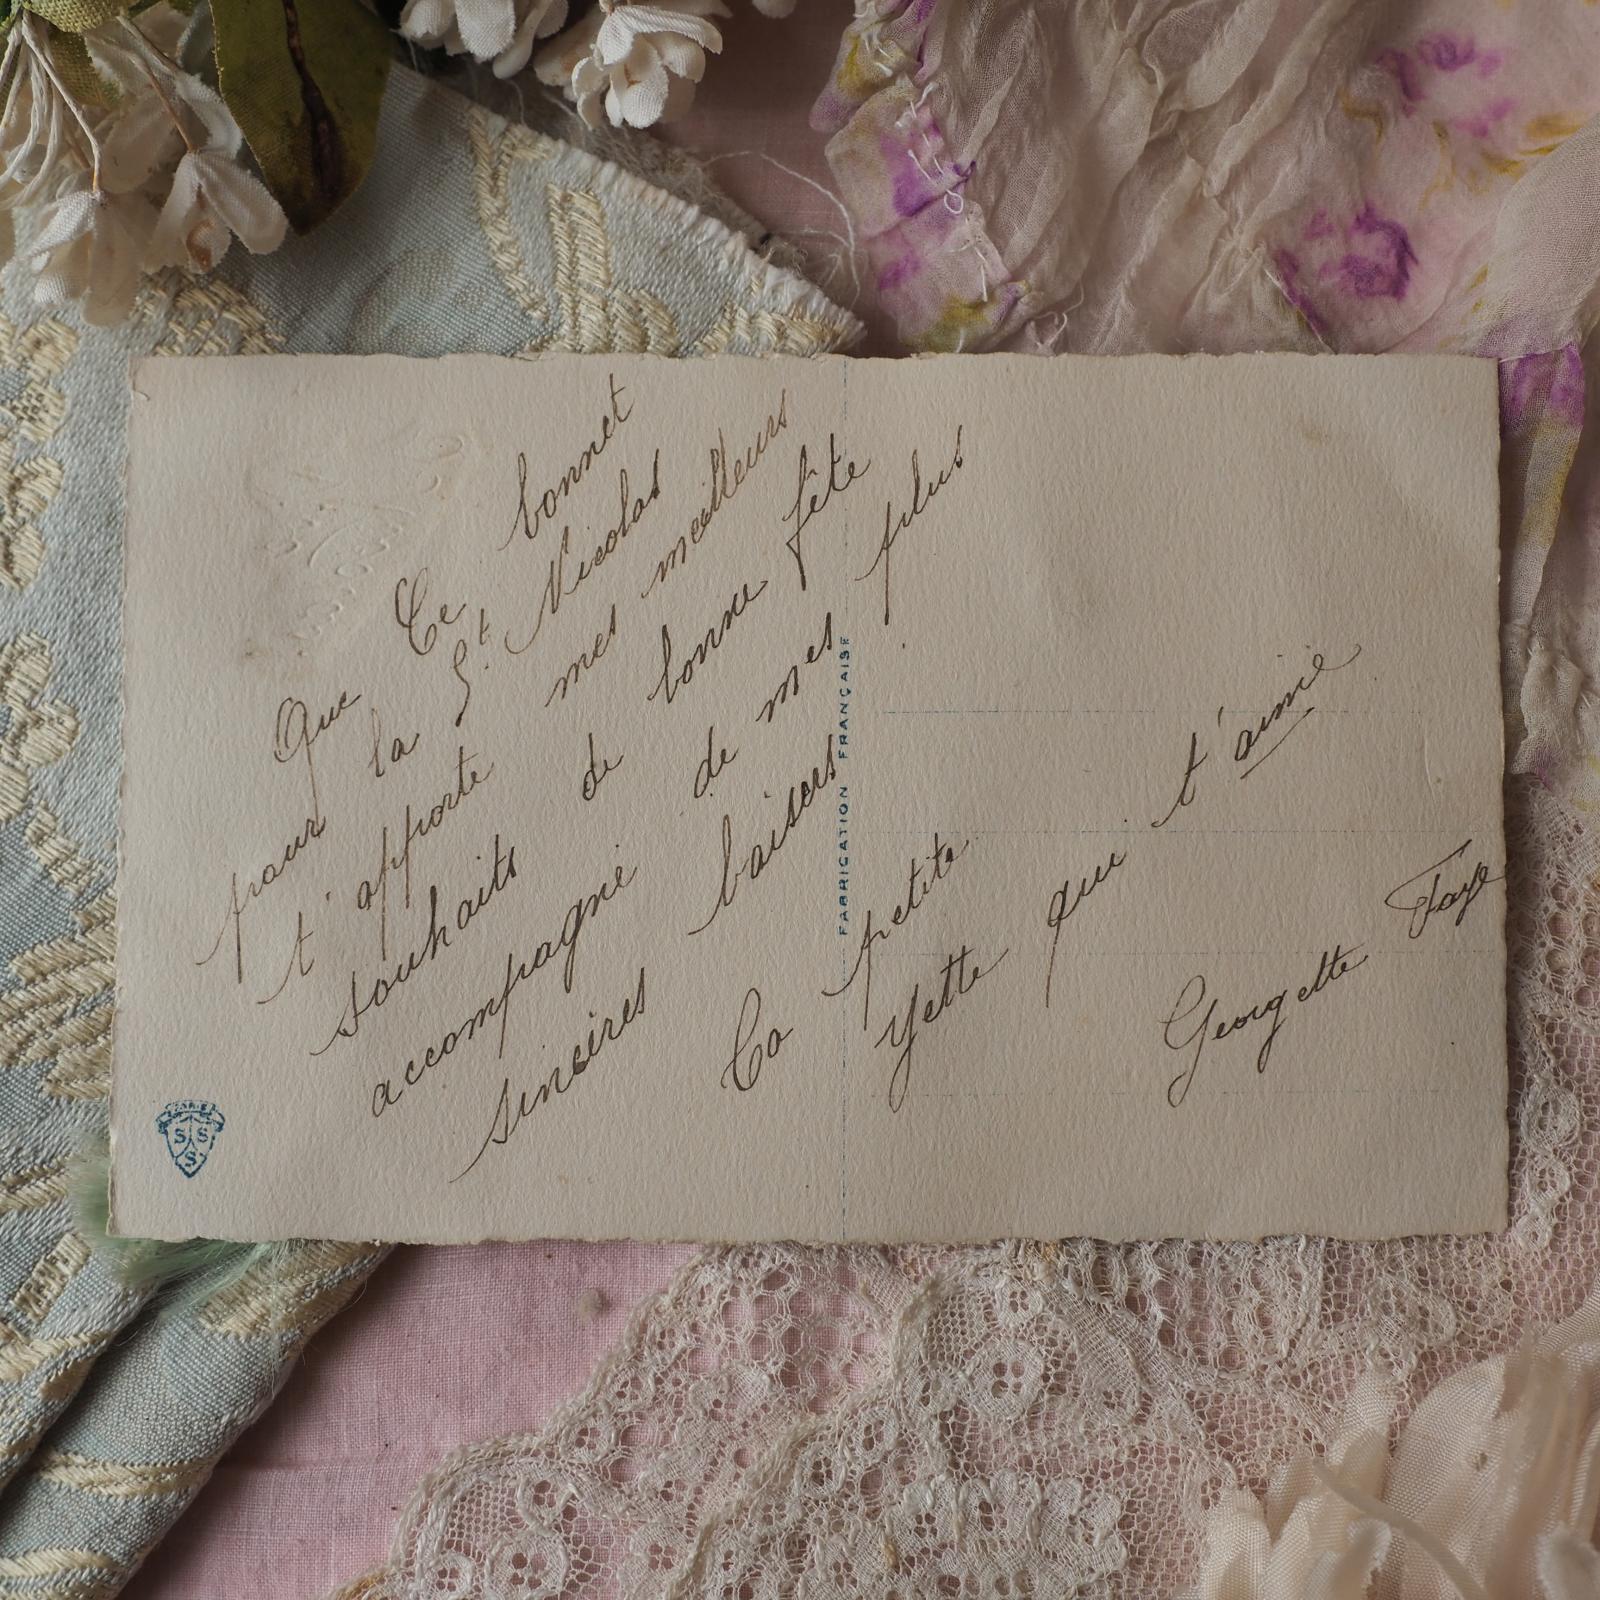 Que Ce bonnet
pour la St Nicolas
t'apporte mes meilleurs
souhaits de bonne fête
accompagné de mes plus
sincères baisers
Ta petite
Yette qui t'aime
Georgette Faye
FABRICATION FRANÇAISE
PARIS
S S
S